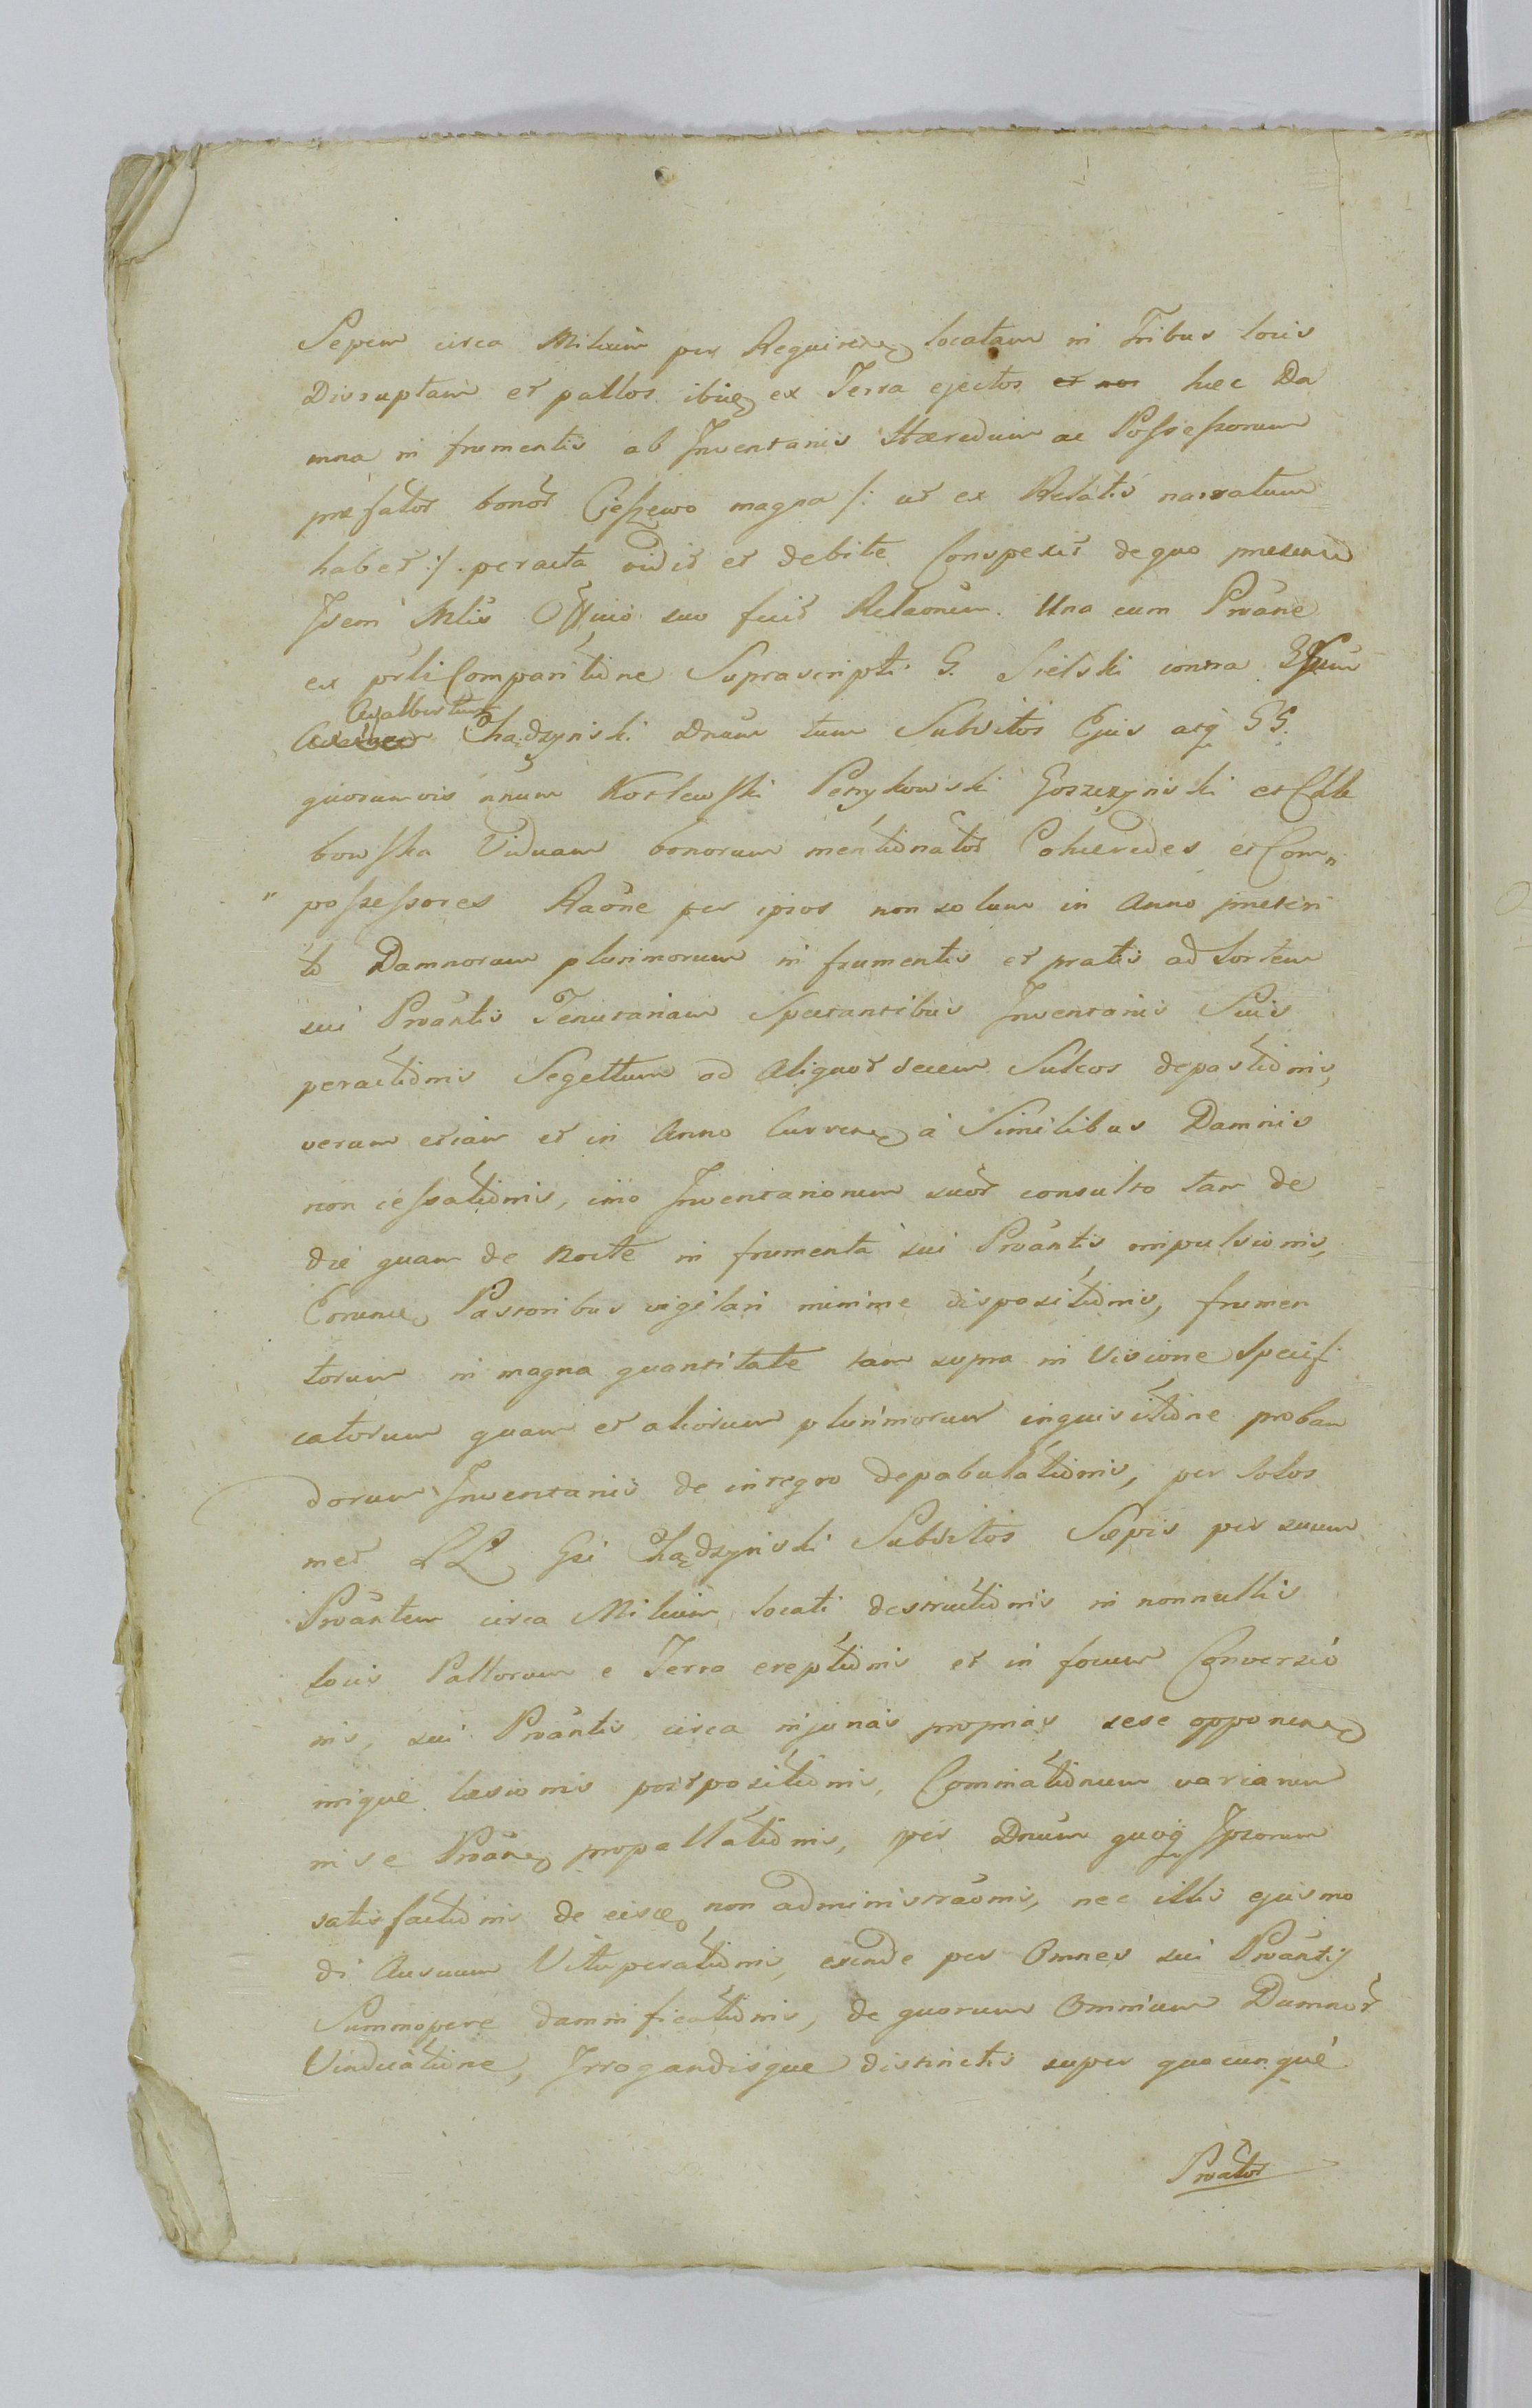 Sepem circa Milium per Requiren locatam in Tribus locis
Disruptam et pallos ibid ex Terra ejectos et nos hæc Da
mna in frumentis ab Inventariis Hæredum ac Possessorum
præfator bonor Cieszewo magna /: ut ex Relatis narratum
habet :/ peracta vidit et debite Conspexit de quo præsenti
Idem Mlis Officio suo fecit Relaonem. Una cum Proane
ex prti Comparitione Suprascripti G. Sielski contra Gsum
Adalbertum Chądzynski Dnum tum Subditos Ejus atq GG.
quorumvis unum Kozlewski Perzykowski Goszczynski et Chle
bowska Viduam bonorum mentionator Cohæredes et Com„
„ possessores Raone per ipsos non solum in Anno præteri
to Damnorum plurimorum in frumentis et pratis ad Sortem
sui Proantis Tenutariam Spectantibus Inventariis Suis
peractionis Segettum ad aliquot decem Sulcos depastionis,
verum etiam et in Anno Curren à Similibus Damnis
non cessationis, imo Inventariorum suor consulto tam de
die quam de nocte in frumenta sui Proantis impulsionis,
Eorund Pastoribus vigilari minime dispositionis, frumen
torum in magna quantitate tam supra in Visione Specifi
catorum quam et aliorum plurimorum inquisitione proban
dorum Inventariis de integro depabulationis, per Solos
met LL Gsi Chądzynski Subditos Sæpis per suum
Proantem circa Milium locati destructionis in nonnullis
locis Pallorum e Terra ereptionis et in focum Conversio
nis, sui Proantis circa injurias proprias sese opponen
inique læsionis postpositionis, Cominationum variarum
in se Proan propallationis, per Dnum quoq Ipsorum
satisfactionis de eisd non administraonis, nec illis ejusmo
di Ausuum Vituperationis, exinde per Omnes sui Proantis
Summopere damnificationis, de quorum Omnium Damnor
Vindicatione, Irrogandisque districtis super quocunque
Proator